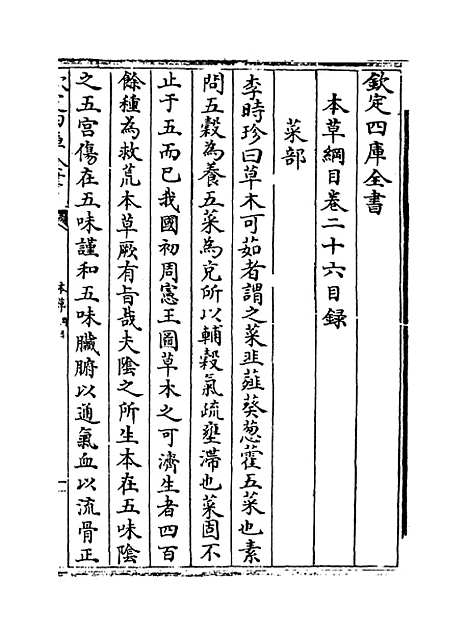 欽定四庫全書
本草綱目卷二十六目録
菜部
李時珍曰草木可茹者謂之菜韭薤葵葱藿五菜也素
問五穀為養五菜為充所以輔穀氣疏壅滯也菜固不
止于五而已我國初周憲王圖草木之可濟生者四百
餘種為救荒本草厥有旨哉夫陰之所生本在五味陰
之五宫傷在五味謹和五味臟腑以通氣血以流骨正